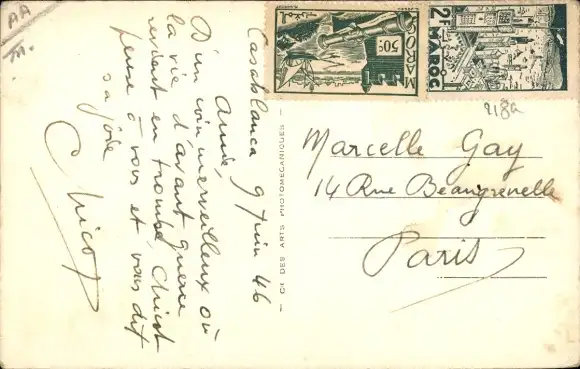 AA
m.
Casablanca 9 Juin 46
Amie,
D'un coin merveilleux où
la vie d'avant guerre
revient en trombe, Chicot
pense à vous et vous dit
sa joie
Chicot
CIE DES ARTS PHOTOMECANIQUES
MAROC
50c
2F MAROC
218a
Marcelle Gay
14 Rue Beaugrenelle
Paris